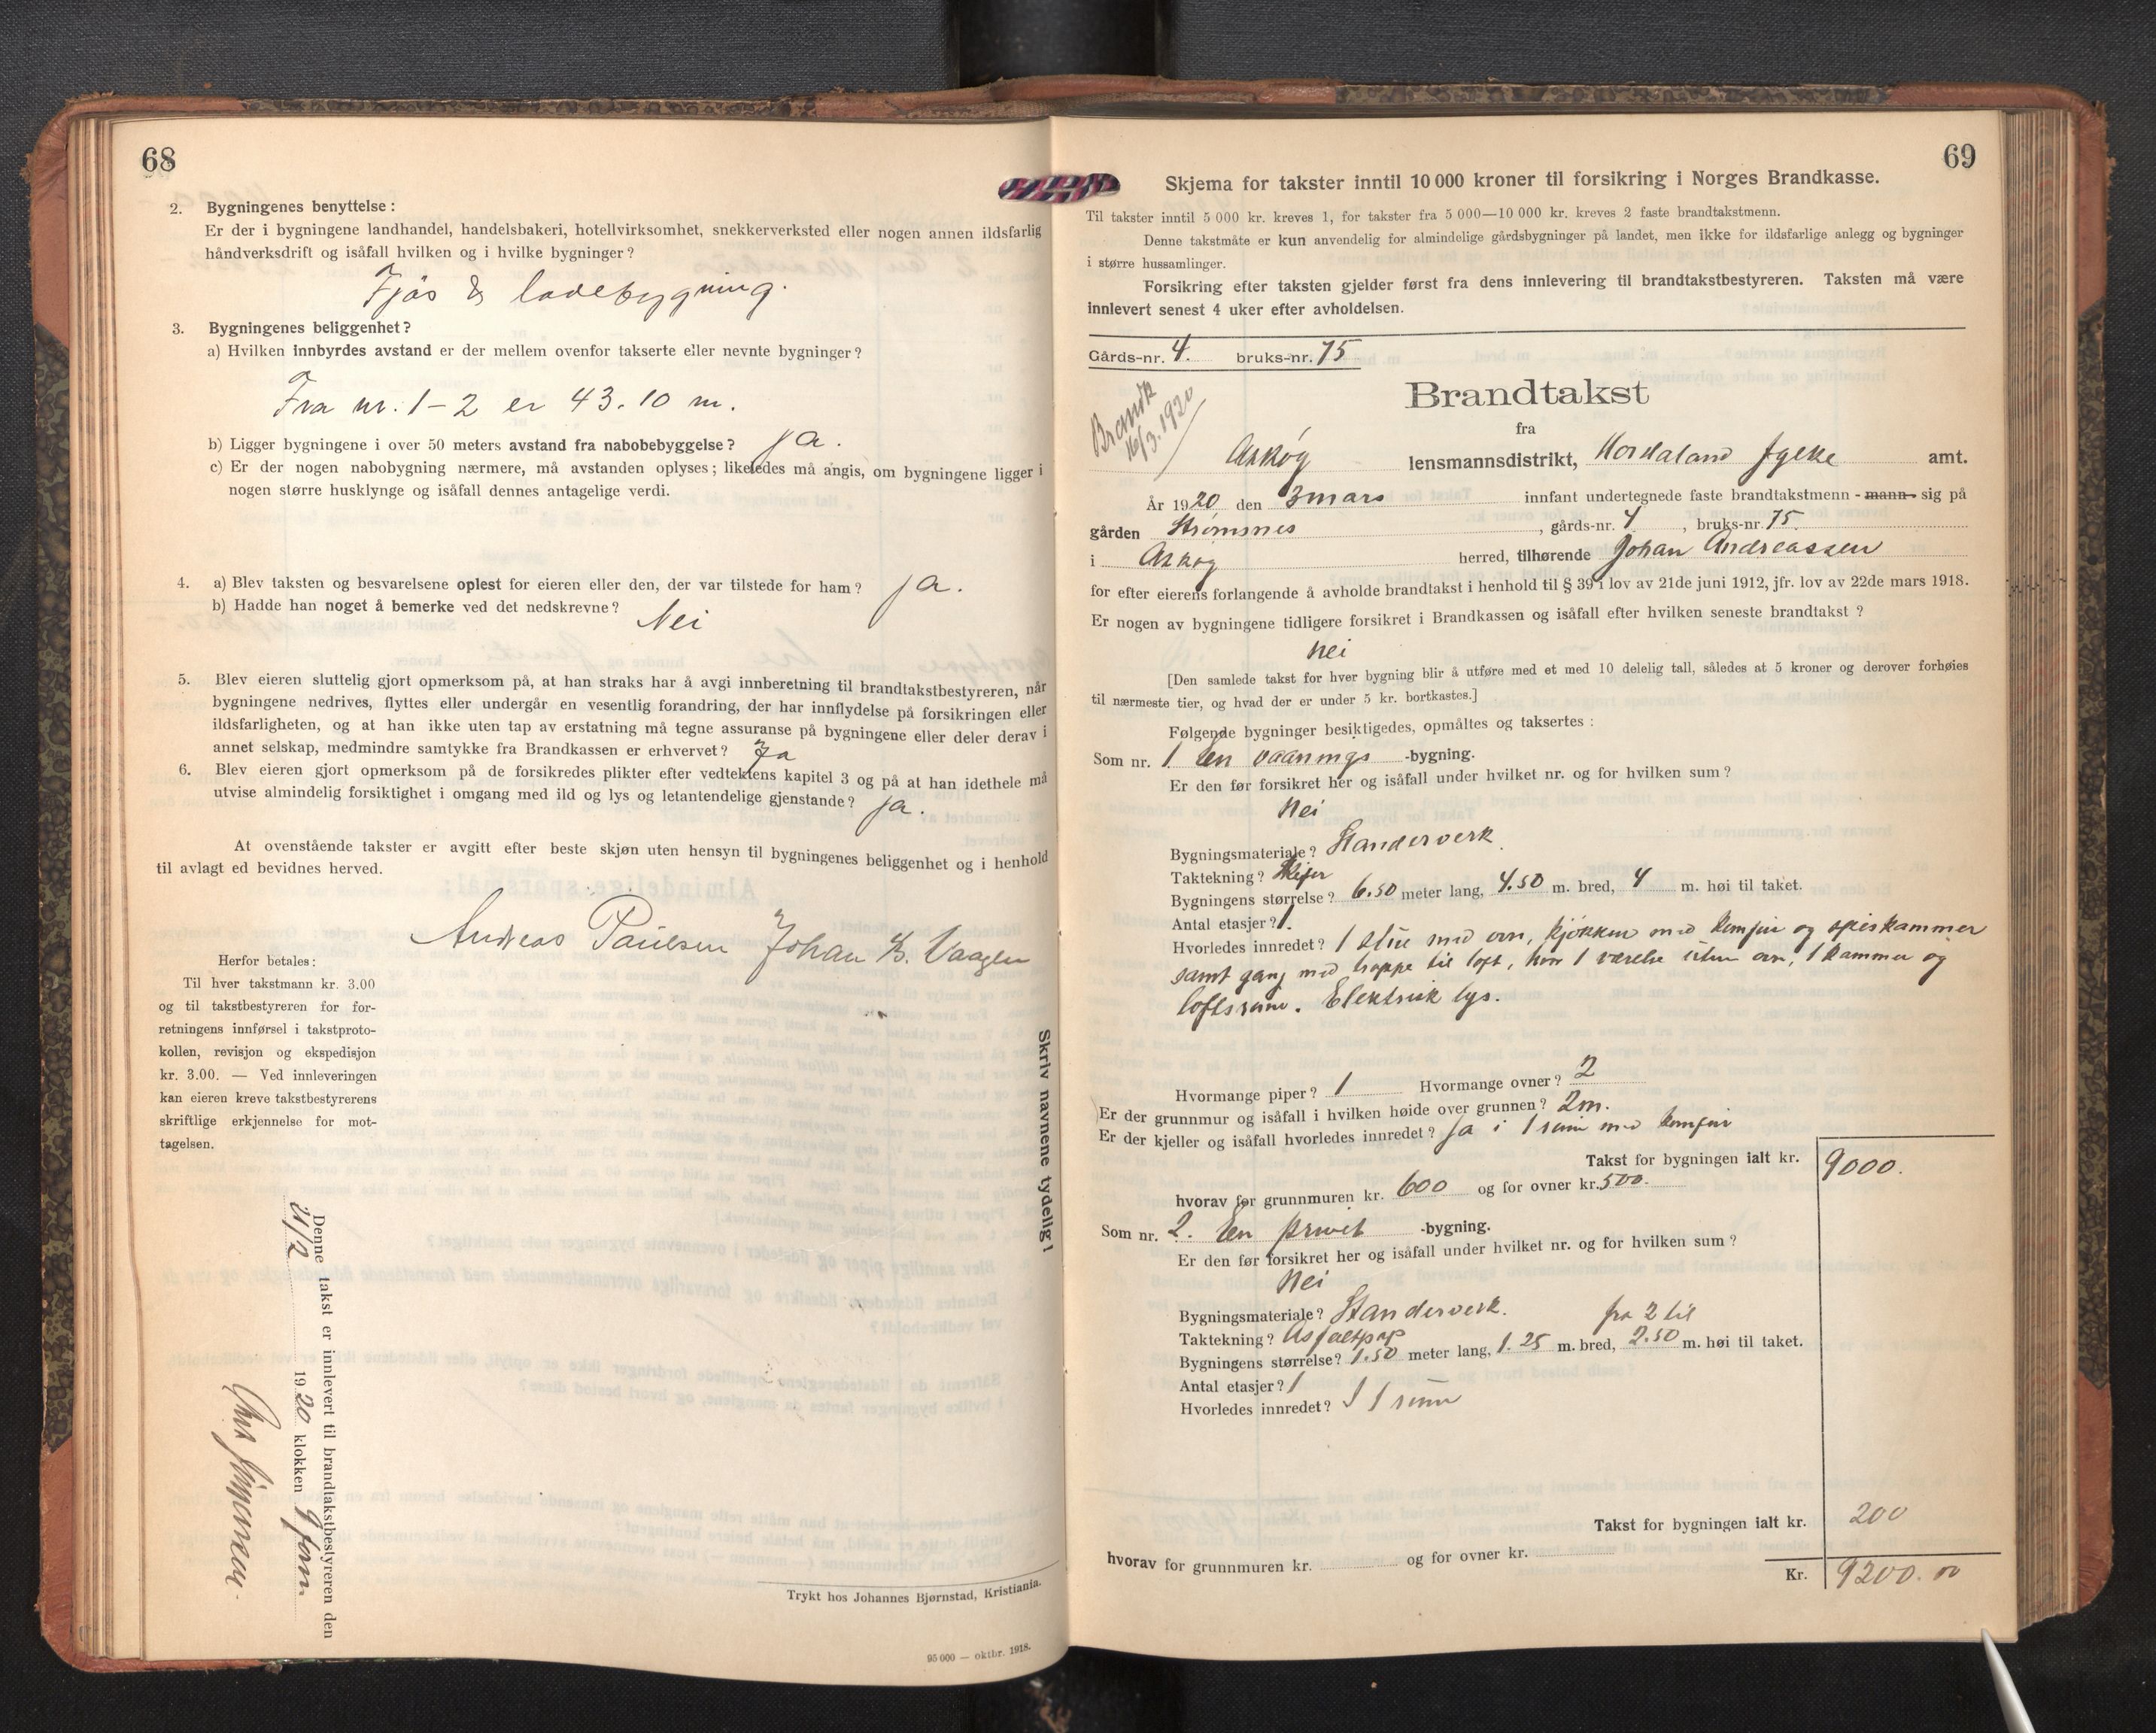 68
2. Bygningenes benyttelse:
Er der i bygningene landhandel, handelsbakeri, hotellvirksomhet, snekkerverksted eller nogen annen ildsfarlig
håndverksdrift og isåfall hvilken og i hvilke bygninger?
Fjøs & ladebygning.
3. Bygningenes beliggenhet?
a) Hvilken innbyrdes avstand er der mellem ovenfor takserte eller nevnte bygninger?
Fra nr. 1-2 er 43.10 m.
b) Ligger bygningene i over 50 meters avstand fra nabobebyggelse? ja.
c) Er der nogen nabobygning nærmere, må avstanden oplyses; likeledes må angis, om bygningene ligger i
nogen større husklynge og isåfall dennes antagelige verdi.
4. a) Blev taksten og besvarelsene oplest for eieren eller den, der var tilstede for ham? ja.
b) Hadde han noget å bemerke ved det nedskrevne? Nei
5. Blev eieren sluttelig gjort opmerksom på, at han straks har å avgi innberetning til brandtakstbestyreren, når
bygningene nedrives, flyttes eller undergår en vesentlig forandring, der har innflydelse på forsikringen eller
ildsfarligheten, og at han ikke uten tap av erstatning må tegne assuranse på bygningene eller deler derav i
annet selskap, medmindre samtykke fra Brandkassen er erhvervet? Ja
6. Blev eieren gjort opmerksom på de forsikredes plikter efter vedtektens kapitel 3 og på at han idethele må
utvise almindelig forsiktighet i omgang med ild og lys og letantendelige gjenstande? ja.
At ovenstående takster er avgitt efter beste skjøn uten hensyn til bygningenes beliggenhet og i henhold
til avlagt ed bevidnes herved.
Andreas Paulsen Johan B. Vaagen
Herfor betales:
Til hver takstmann kr. 3.00
og til takstbestyreren for for-
retningens innførsel i takstproto-
kollen, revisjon og ekspedisjon
kr. 3.00. — Ved innleveringen
kan eieren kreve takstbestyrerens
skriftlige erkjennelse for mot-
tagelsen.
Skriv navnene tydelig!
Denne takst er innlevert til brandtakstbestyreren den
21/2 1920 klokken 9 form.
Trykt hos Johannes Bjørnstad, Kristiania.
95 000 — oktbr. 1918.
69
Skjema for takster inntil 10 000 kroner til forsikring i Norges Brandkasse.
Til takster inntil 5 000 kr. kreves 1, for takster fra 5 000—10 000 kr. kreves 2 faste brandtakstmenn.
Denne takstmåte er kun anvendelig for almindelige gårdsbygninger på landet, men ikke for ildsfarlige anlegg og bygninger
i større hussamlinger.
Forsikring efter taksten gjelder først fra dens innlevering til brandtakstbestyreren. Taksten må være
innlevert senest 4 uker efter avholdelsen.
Gårds-nr. 4. bruks-nr. 75
Brandk
16/3.1920
Brandtakst
fra
Askøy lensmannsdistrikt, Hordaland fylke amt.
År 1920 den 3 mars innfant undertegnede faste brandtakstmenn - mann sig på
gården Strømsnes, gårds-nr. 4, bruks-nr. 75.
i Askøy herred, tilhørende Johan Andreassen
for efter eierens forlangende å avholde brandtakst i henhold til § 39 i lov av 21de juni 1912, jfr. lov av 22de mars 1918.
Er nogen av bygningene tidligere forsikret i Brandkassen og isåfall efter hvilken seneste brandtakst?
Nei
[Den samlede takst for hver bygning blir å utføre med et med 10 delelig tall, således at 5 kroner og derover forhøies
til nærmeste tier, og hvad der er under 5 kr. bortkastes.]
Følgende bygninger besiktigedes, opmåltes og taksertes:
Som nr. 1 En vaanings -bygning.
Er den før forsikret her og isåfall under hvilket nr. og for hvilken sum?
Nei
Bygningsmateriale? Standerverk.
Taktekning? Skifer
Bygningens størrelse? 6.50 meter lang, 4.50 m. bred, 4 m. høi til taket.
Antal etasjer? 1.
Hvorledes innredet? 1 stue med ovn, kjøkken med komfur og spiskammer
samt gang med trappe til loft, hvor 1 værelse uten ovn, 1 kammer og
loftsrum. Elektrisk lys.
Hvormange piper? 1 Hvormange ovner? 2
Er der grunnmur og isåfall i hvilken høide over grunnen? 2m.
Er der kjeller og isåfall hvorledes innredet? Ja i 1 rum med komfur
Takst for bygningen ialt kr. 9000.
hvorav før grunnmuren kr. 600 og for ovner kr. 500.
Som nr. 2. En privet -bygning.
Er den før forsikret her og isåfall under hvilket nr. og for hvilken sum?
Nei
Bygningsmateriale? Standerverk. fra 2 til
Taktekning? Asfaltpap
Bygningens størrelse? 1.50 meter lang, 1.25 m. bred, 2.50 m. høi til taket.
Antal etasjer? 1
Hvorledes innredet? I 1 rum
Takst for bygningen ialt kr. 200
hvorav for grunnmuren kr. og for ovner kr.
Kr. 9200.00